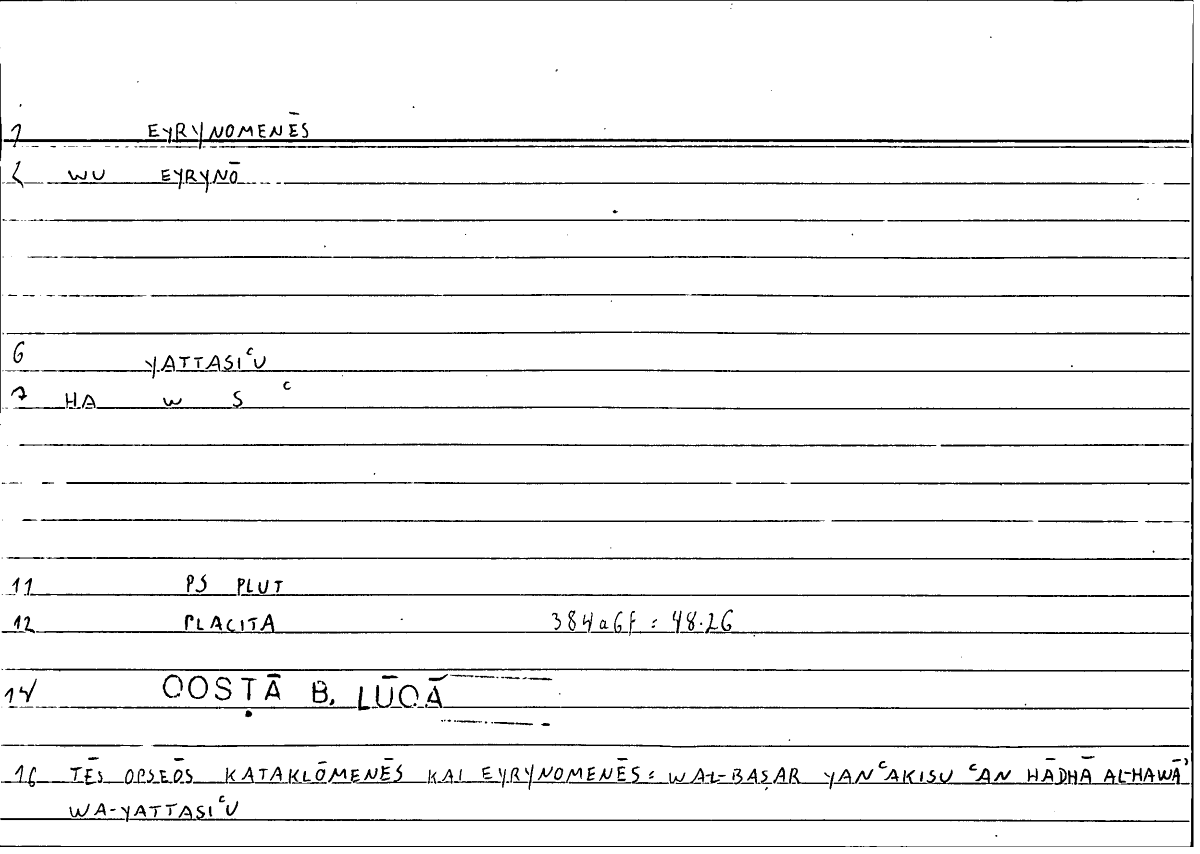 1 EYRYNOMENĒS
2 WU EYRYNŌ
6 YATTASIᶜU
7 HA W S ᶜ
11 PS PLUT
12 PLACITA 384a6f = 48.26
14 QOSṬĀ B. LŪQĀ
16 TĒS OPSEŌS KATAKLŌMENĒS KAI EYRYNOMENĒS = WAL-BAṢAR YANᶜAKISU ᶜAN HĀDHĀ AL-HAWĀʾ
WA-YATTASIᶜU